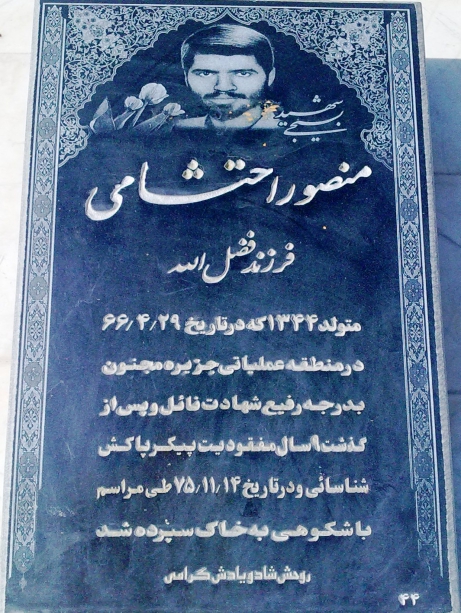 شهید
بسیجی
منصور احتشامی
فرزند فضل الله
متولد ۱۳۴۴ که در تاریخ ۶۶/۴/۲۹
در منطقه عملیاتی جزیره مجنون
بدرجه رفیع شهادت نائل و پس از
گذشت ۹ سال مفقودیت پیکر پاکش
شناسائی و در تاریخ ۷۵/۱۱/۱۴ طی مراسم
باشکوهی به خاک سپرده شد
روحش شاد و یادش گرامی
۴۴